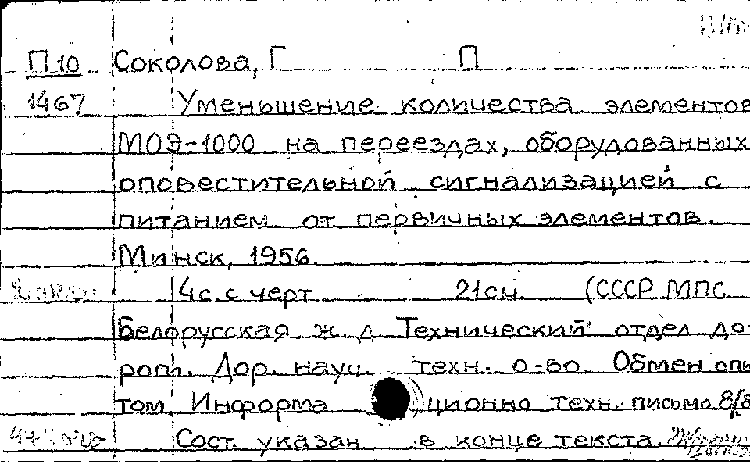 П10 Соколова, Г П
1467 Уменьшение количества элементов
МОЭ-1000 на переездах, оборудованных
оповестительной сигнализацией с
питанием от первичных элементов.
Минск, 1956.
4с. с черт 21см. (СССР МПС
Белорусская ж д Технический отдел до
роги. Дор. науч. техн. о-во. Обмен опы
том. Информа ционно техн. письмо 8/8
Сост. указан в конце текста.